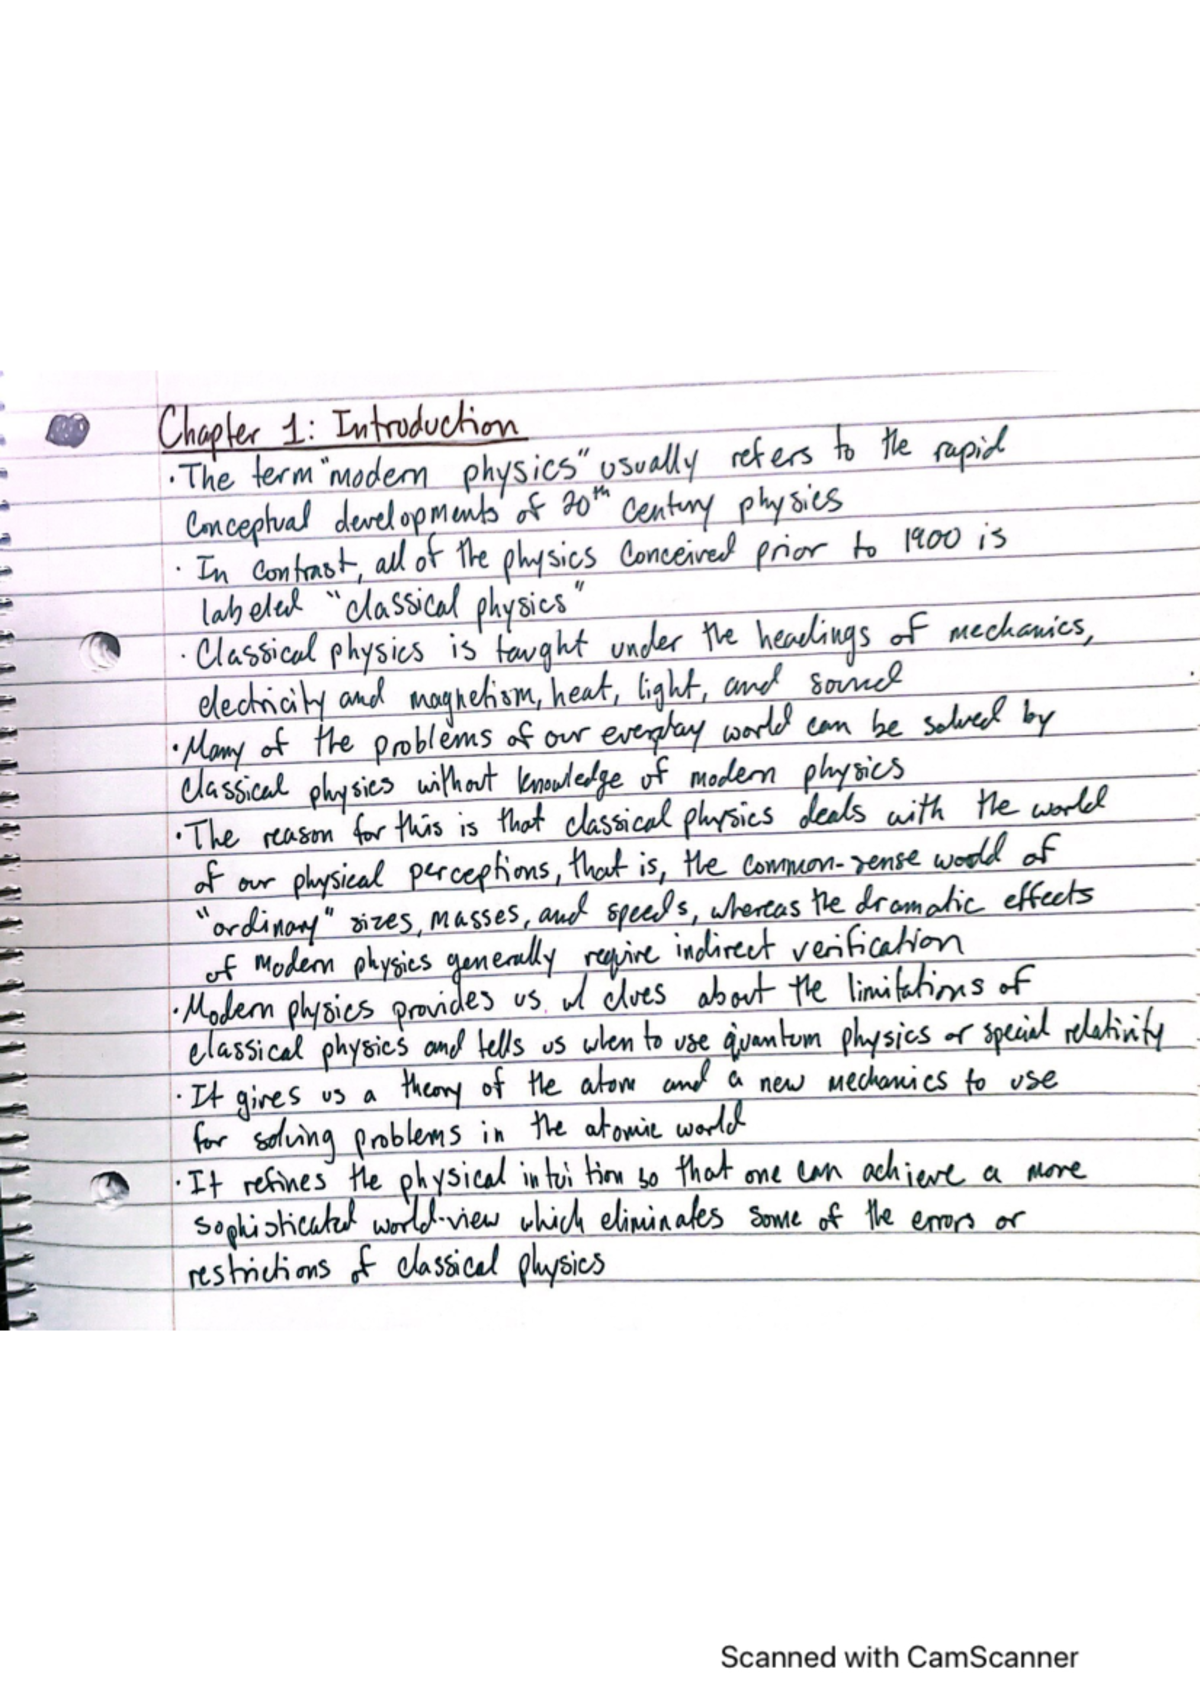 Chapter 1: Introduction
· The term "modern physics" usually refers to the rapid
conceptual developments of 20th century physics
· In contrast, all of the physics conceived prior to 1900 is
labeled "classical physics"
· Classical physics is taught under the headings of mechanics,
electricity and magnetism, heat, light, and sound
· Many of the problems of our everyday world can be solved by
classical physics without knowledge of modern physics
· The reason for this is that classical physics deals with the world
of our physical perceptions, that is, the common-sense world of
"ordinary" sizes, masses, and speeds, whereas the dramatic effects
of modern physics generally require indirect verification
· Modern physics provides us w/ clues about the limitations of
classical physics and tells us when to use quantum physics or special relativity
· It gives us a theory of the atom and a new mechanics to use
for solving problems in the atomic world
· It refines the physical intuition so that one can achieve a more
sophisticated world-view which eliminates some of the errors or
restrictions of classical physics
Scanned with CamScanner